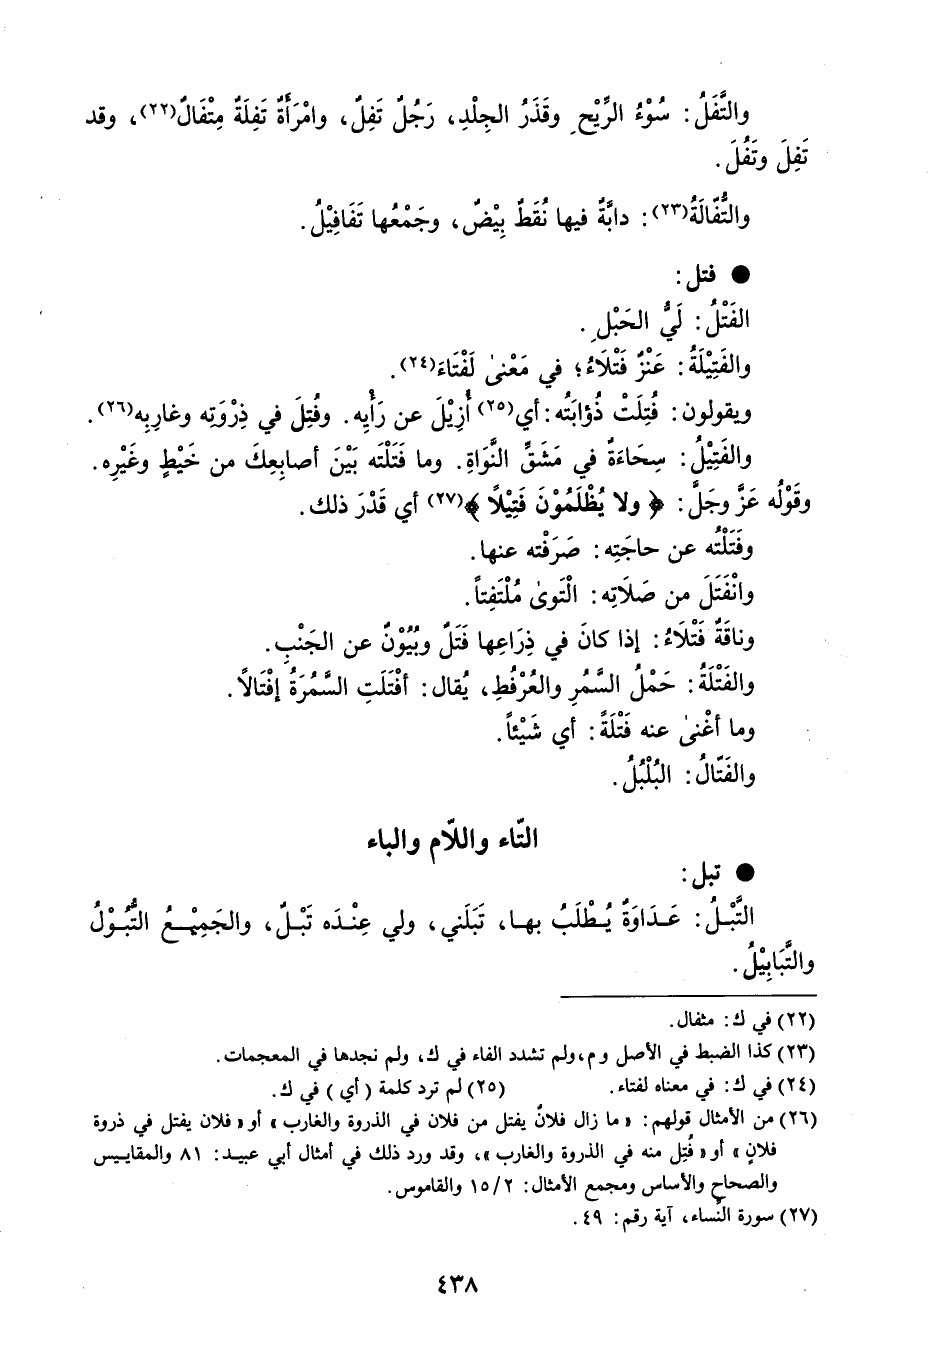 والتَّفَلُ: سُوْءُ الرِّيْحِ وقَذَرُ الجِلْدِ، رَجُلٌ تَفِلٌ، وامْرَأَةٌ تَفِلَةٌ مِتْفَالٌ(٢٢)، وقد
تَفِلَ وتَفُلَ.
والتُّفّالَةُ(٢٣): دابَّةٌ فيها نُقَطٌ بِيْضٌ، وجَمْعُها تَفَافِيْلُ.
● فتل:
الفَتْلُ: لَيُّ الحَبْلِ.
والفَتِيْلَةُ: عَنْزٌ فَتْلَاءُ؛ في مَعْنىٰ لَفْتَاءَ(٢٤).
ويقولون: فُتِلَتْ ذُؤابَتُه: أي(٢٥) أُزِيْلَ عن رَأْيِه. وفُتِلَ في ذِرْوَتِه وغارِبِه(٢٦).
والفَتِيْلُ: سِحَاءَةٌ في مَشَقِّ النَّوَاةِ. وما فَتَلْتَه بَيْنَ أصابِعِكَ من خَيْطٍ وغَيْرِه.
وقَوْلُه عَزَّ وجَلَّ: ﴿ ولا يُظْلَمُوْنَ فَتِيْلًا ﴾(٢٧) أي قَدْرَ ذلك.
وفَتَلْتُه عن حاجَتِه: صَرَفْته عنها.
وانْفَتَلَ من صَلَاتِه: الْتَوىٰ مُلْتَفِتاً.
وناقَةٌ فَتْلَاءُ: إذا كانَ في ذِرَاعِها فَتَلٌ وبُيُوْنٌ عن الجَنْبِ.
والفَتْلَةُ: حَمْلُ السَّمُرِ والعُرْفُطِ، يُقال: أفْتَلَتِ السَّمُرَةُ إفْتَالًا.
وما أغْنىٰ عنه فَتْلَةً: أي شَيْئاً.
والفَتّالُ: البُلْبُلُ.
التّاء واللاّم والباء
● تبل:
التَّبْلُ: عَدَاوَةٌ يُطْلَبُ بها، تَبَلَني، ولي عِنْدَه تَبْلٌ، والجَمِيْعُ التُّبُوْلُ
والتَّبَابِيْلُ.
(٢٢) في ك: مثفال.
(٢٣) كذا الضبط في الأصل وم، ولم تشدد الفاء في ك، ولم نجدها في المعجمات.
(٢٤) في ك: في معناه لفتاء. (٢٥) لم ترد كلمة (أي) في ك.
(٢٦) من الأمثال قولهم: «ما زال فلانٌ يفتل من فلان في الذروة والغارب» أو «فلان يفتل في ذروة
فلانٍ» أو «فُتِل منه في الذروة والغارب»، وقد ورد ذلك في أمثال أبي عبيد: ٨١ والمقاييس
والصحاح والأساس ومجمع الأمثال: ١٥/٢ والقاموس.
(٢٧) سورة النِّساء، آية رقم: ٤٩.
٤٣٨